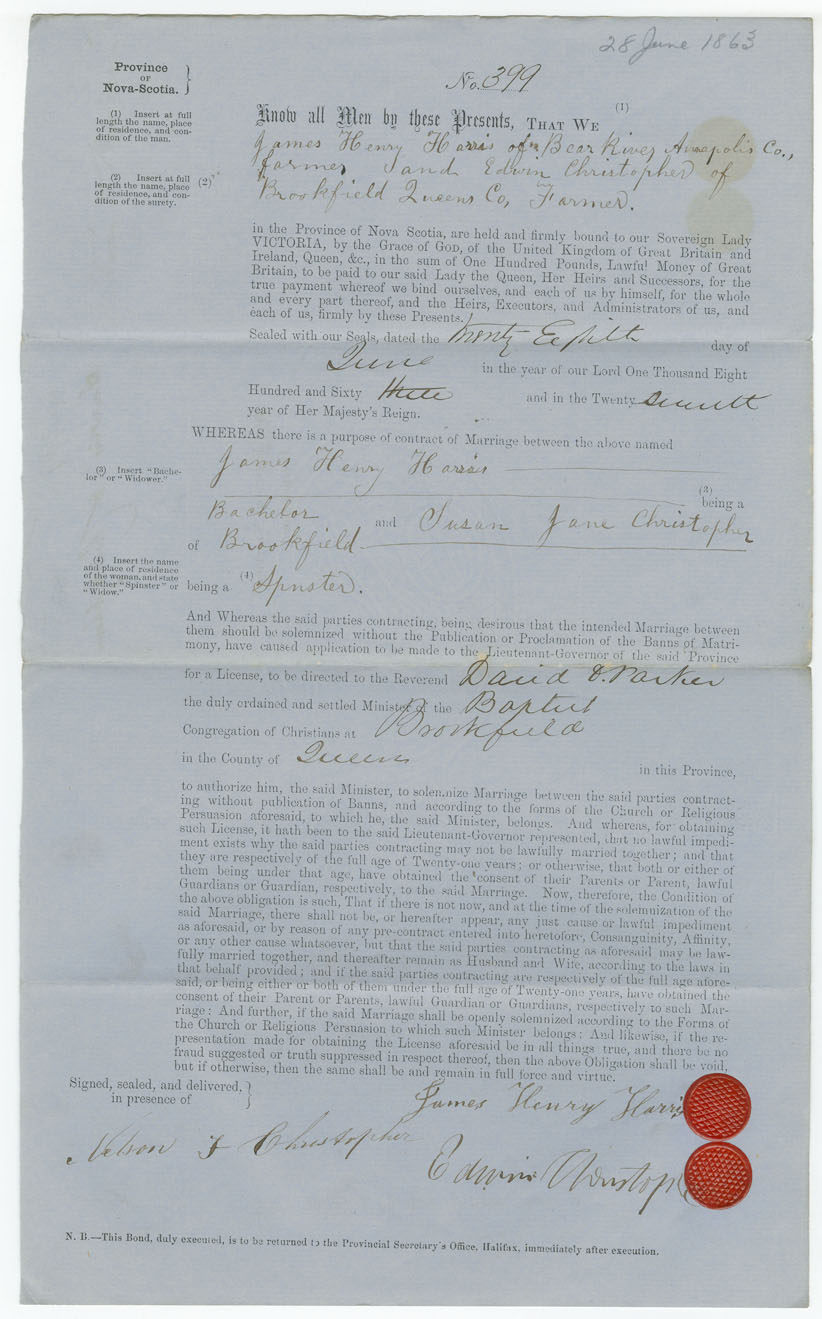 28 June 1863
Province
OF
Nova-Scotia.
No. 399
(1) Insert at full
length the name, place
of residence, and con-
dition of the man.
(2) Insert at full
length the name, place
of residence, and con-
dition of the surety.
(1)
Know all Men by these Presents, THAT WE
James Henry Harris of Bear River Annapolis Co.,
Farmer and Edwin Christopher of
(2)
Brookfield Queens Co, Farmer.
in the Province of Nova Scotia, are held and firmly bound to our Sovereign Lady
VICTORIA, by the Grace of GOD, of the United Kingdom of Great Britain and
Ireland, Queen, &c., in the sum of One Hundred Pounds, Lawful Money of Great
Britain, to be paid to our said Lady the Queen, Her Heirs and Successors, for the
true payment whereof we bind ourselves, and each of us by himself, for the whole
and every part thereof, and the Heirs, Executors, and Administrators of us, and
each of us, firmly by these Presents.
Sealed with our Seals, dated the Twenty Eighth day of
June in the year of our Lord One Thousand Eight
Hundred and Sixty three and in the Twenty seventh
year of Her Majesty's Reign.
WHEREAS there is a purpose of contract of Marriage between the above named
(3) Insert "Bache-
lor" or "Widower."
James Henry Harris
(3)
being a
Bachelor and Susan Jane Christopher
of Brookfield
(4) Insert the name
and place of residence
of the woman, and state
whether "Spinster" or
"Widow."
being a (4) Spnster.
And Whereas the said parties contracting, being desirous that the intended Marriage between
them should be solemnized without the Publication or Proclamation of the Banns of Matri-
mony, have caused application to be made to the Lieutenant-Governor of the said Province
for a License, to be directed to the Reverend David O. Parker
the duly ordained and settled Minister of the Baptist
Congregation of Christians at Brookfield
in the County of Queens in this Province,
to authorize him, the said Minister, to solemnize Marriage between the said parties contract-
ing without publication of Banns, and according to the forms of the Church or Religious
Persuasion aforesaid, to which he, the said Minister, belongs. And whereas, for obtaining
such License, it hath been to the said Lieutenant-Governor represented, that no lawful impedi-
ment exists why the said parties contracting may not be lawfully married together; and that
they are respectively of the full age of Twenty-one years; or otherwise, that both or either of
them being under that age, have obtained the consent of their Parents or Parent, lawful
Guardians or Guardian, respectively, to the said Marriage. Now, therefore, the Condition of
the above obligation is such, That if there is not now, and at the time of the solemnization of the
said Marriage, there shall not be, or hereafter appear, any just cause or lawful impediment
as aforesaid, or by reason of any pre-contract entered into heretofore, Consanguinity, Affinity,
or any other cause whatsoever, but that the said parties contracting as aforesaid may be law-
fully married together, and thereafter remain as Husband and Wife, according to the laws in
that behalf provided; and if the said parties contracting are respectively of the full age afore-
said, or being either or both of them under the full age of Twenty-one years, have obtained the
consent of their Parent or Parents, lawful Guardian or Guardians, respectively to such Mar-
riage: And further, if the said Marriage shall be openly solemnized according to the Forms of
the Church or Religious Persuasion to which such Minister belongs: And likewise, if the re-
presentation made for obtaining the License aforesaid be in all things true, and there be no
fraud suggested or truth suppressed in respect thereof, then the above Obligation shall be void,
but if otherwise, then the same shall be and remain in full force and virtue.
Signed, sealed, and delivered,
in presence of
James Henry Harris
Nelson F Christopher
Edwin Christoph
N. B.—This Bond, duly executed, is to be returned to the Provincial Secretary's Office, Halifax, immediately after execution.